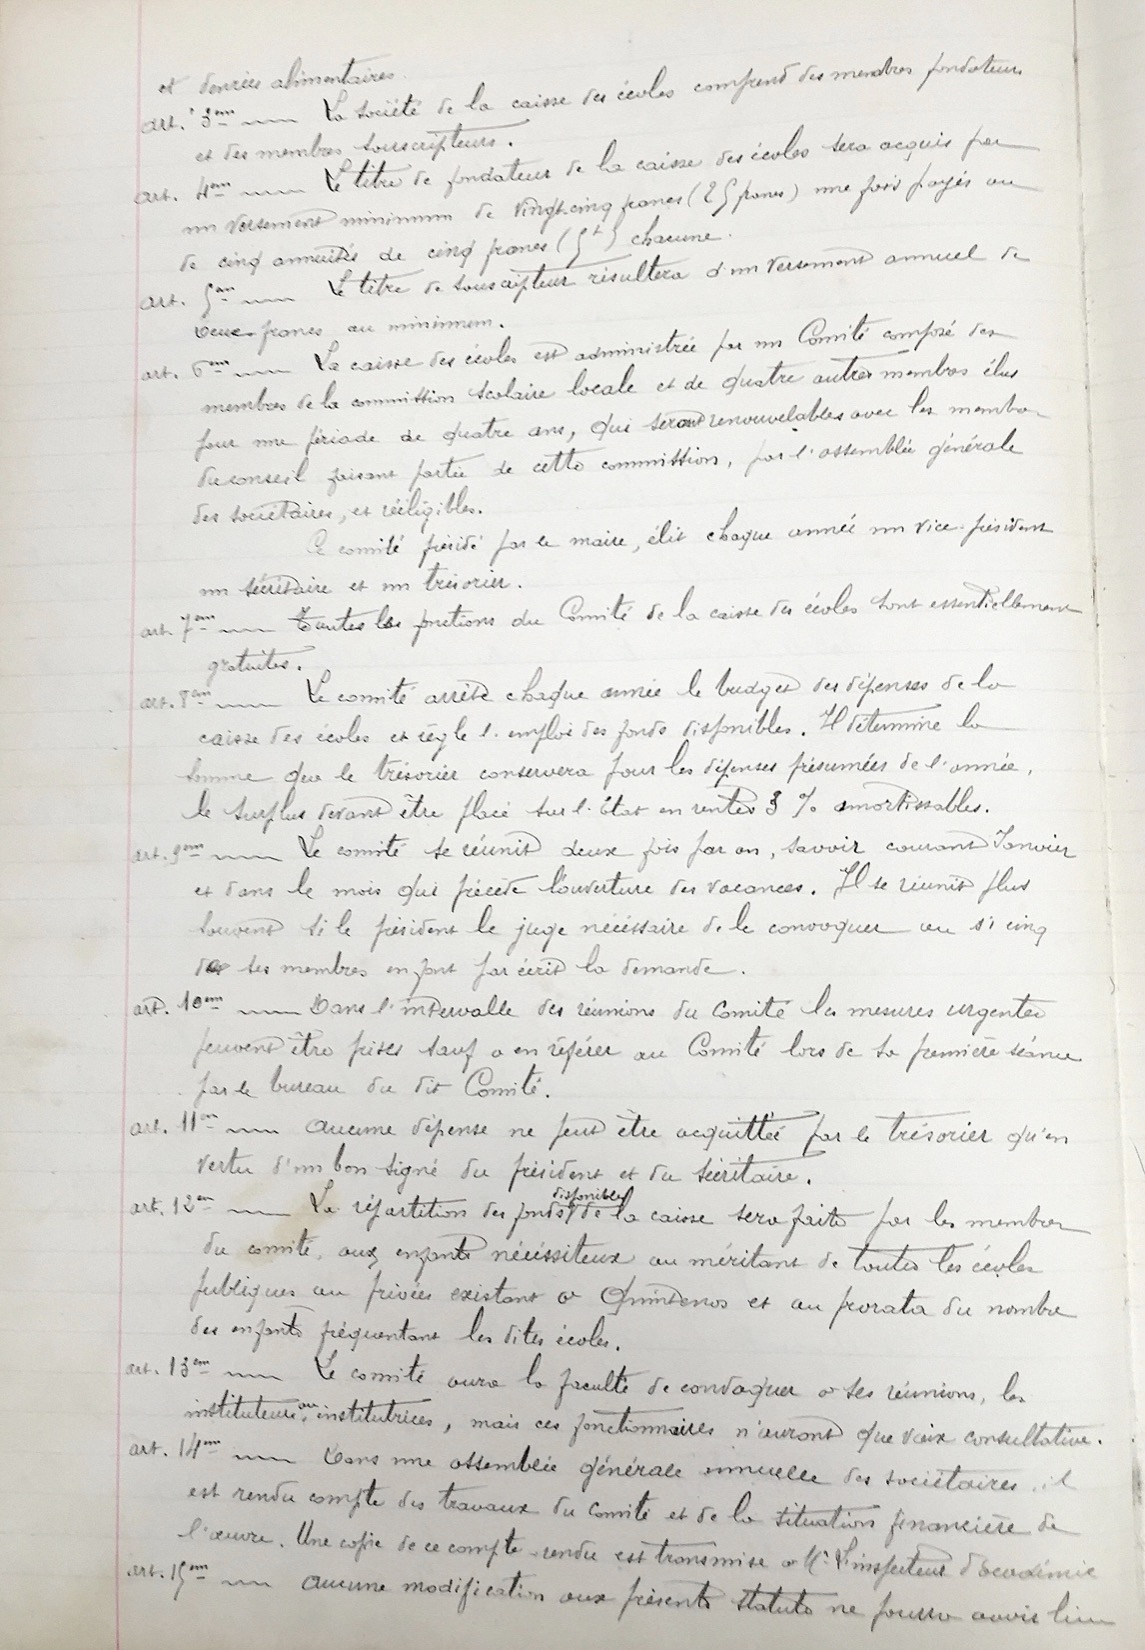 et denrées alimentaires.
art. 3em La société de la caisse des écoles comprend des membres fondateurs
et des membres souscripteurs.
art. 4em Le titre de fondateur de la caisse des écoles sera acquis par
un versement minimum de vingt-cinq francs (25 francs) une fois payés ou
de cinq annuités de cinq francs (5 f) chacune.
art. 5em Le titre de souscripteur résultera d'un versement annuel de
deux francs au minimum.
art. 6em La caisse des écoles est administrée par un Comité composé des
membres de la commission scolaire locale et de quatre autres membres élus
pour une période de quatre ans, qui seront renouvelables avec les membres
du conseil faisant partie de cette commission, par l'assemblée générale
des sociétaires, et rééligibles.
Ce comité présidé par le maire, élit chaque année un vice-président
un sécrétaire et un trésorier.
art. 7em Toutes les fonctions du Comité de la caisse des écoles sont essentiellement
gratuites.
art. 8em Le comité arrête chaque année le budget des dépenses de la
caisse des écoles et règle l'emploi des fonds disponibles. Il détermine la
somme que le trésorier conservera pour les dépenses présumées de l'année,
le surplus devant être placé sur l'Etat en rentes 3 % amortissables.
art. 9em Le comité se réunit deux fois par an, savoir courant Janvier
et dans le mois qui précède l'ouverture des vacances. Il se réunit plus
souvent si le président le juge nécéssaire de le convoquer ou si cinq
de ses membres en font par écrit la demande.
art. 10em Dans l'intervalle des réunions du Comité les mesures urgentes
peuvent être prises sauf a en référer au Comité lors de sa première séance
par le bureau du dit Comité.
art. 11em aucune dépense ne peut être acquittée par le trésorier qu'en
vertu d'un bon signé du président et du sécrétaire.
art. 12em La répartition des fonds disponibles de la caisse sera faite par les membres
du comité, aux enfants nécéssiteux ou méritant de toutes les écoles
publiques ou privées existant a Quindenos et au prorata du nombre
des enfants fréquentant les dites écoles.
art. 13em Le comité aura la faculté de convoquer a ses réunions, les
instituteurs ou institutrices, mais ces fonctionnaires n'auront que voix consultative.
art. 14em Dans une assemblée générale annuelle des sociétaires, il
est rendu compte des travaux du Comité et de la situation financière de
l'œuvre. Une copie de ce compte-rendu est transmise a Mr L'inspecteur d'académie
art. 15em aucune modification aux présents statuts ne pourra avoir lieu